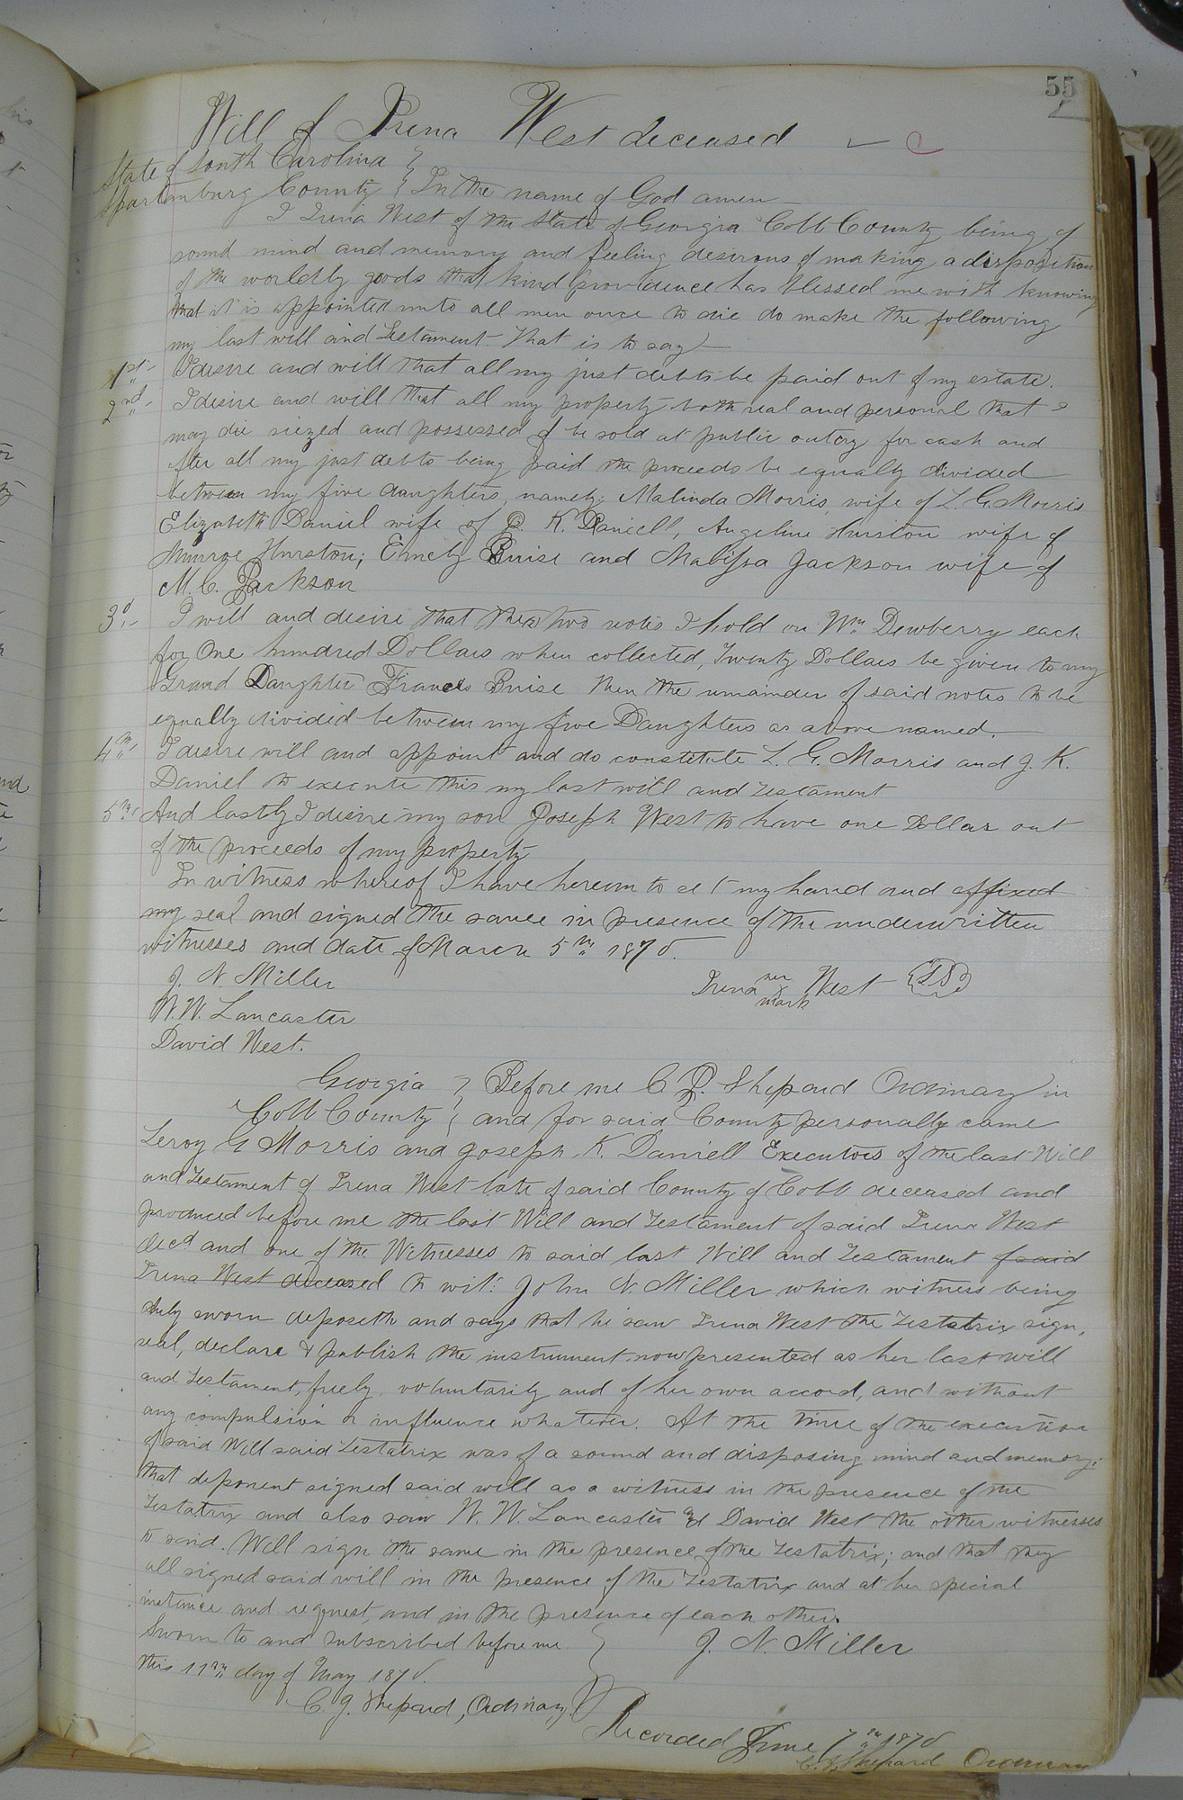 55
Will of Irena West deceased
State of South Carolina }
Spartanburg County } In the name of God amen
I Irena West of the State of Georgia Cobb County being of
sound mind and memory and feeling desirous of making a disposition
of the worldly goods that kind providence has blessed me with knowing
that it is appointed unto all men once to die do make the following
my last will and testament that is to say
1st I desire and will that all my just debts be paid out of my estate.
2nd I desire and will that all my property both real and personal that I
may die siezed and possessed of be sold at public outcry for cash and
after all my just debts being paid the proceeds be equally divided
between my five daughters, namely; Malinda Morris, wife of L. G. Morris
Elizabeth Daniel wife of J. K. Daniell, Angeline Hurston wife of
Munroe Hurston; Emely Buise and Malissa Jackson wife of
M. C. Jackson
3d I will and desire that the two notes I hold on Wm Dewberry each
for One hundred Dollars when collected, Twenty Dollars be given to my
Grand Daughter Frances Buise then the remainder of said notes to be
equally divided between my five Daughters as above named.
4th I desire will and appoint and do constitute L. G. Morris and J. K.
Daniel to execute this my last will and testament
5th And lastly I desire my son Joseph West to have one Dollar out
of the proceeds of my property
In witness whereof I have hereunto set my hand and affixed
my seal and signed the same in presence of the underwritten
witnesses and date of March 5th 1870.
J. N. Miller
Irena her x mark West (LS)
W. W. Lancaster
David West.
Georgia } Before me C. J. Shepard Ordinary in
Cobb County } and for said County personally came
Leroy G Morris and Joseph K. Daniell Executors of the last Will
and Testament of Irena West late of said County of Cobb deceased and
produced before me the last Will and Testament of said Irena West
decd and one of the Witnesses to said last Will and Testament of said
Irena West deceased to wit: John N. Miller which witness being
duly sworn deposeth and says that he saw Irena West the Testatrix sign,
seal, declare & publish the instrument now presented as her last will
and Testament, freely, voluntarily and of her own accord, and without
any compulsion or influence whatever. At the time of the execution
of said Will said Testatrix was of a sound and disposing mind and memory;
that deponent signed said will as a witness in the presence of the
Testatrix and also saw W. W. Lancaster and David West the other witnesses
to said Will sign the same in the presence of the Testatrix; and that they
all signed said will in the presence of the Testatrix and at her special
instance and request, and in the presence of each other.
Sworn to and subscribed before me } J. N. Miller
this 11th day of May 1870.
C. J. Shepard, Ordinary
Recorded June 7th 1870
C. J. Shepard Ordinary